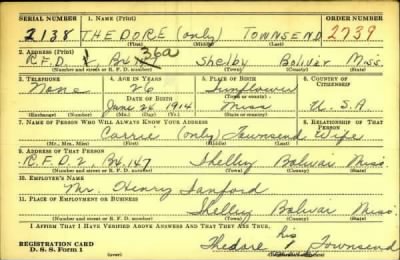 SERIAL NUMBER 1. NAME (Print) ORDER NUMBER
2138 THEDORE (only) TOWNSEND 2739
(First) (Middle) (Last)
2. ADDRESS (Print) 36a
R.F.D. 2, Bx Shelby Bolivar Miss.
(Number and street or R. F. D. number) (Town) (County) (State)
3. TELEPHONE 4. AGE IN YEARS 5. PLACE OF BIRTH 6. COUNTRY OF CITIZENSHIP
None 26 Sunflower
DATE OF BIRTH (Town or county)
June 24 1914 Miss U.S.A
(Exchange) (Number) (Mo.) (Day) (Yr.) (State or country)
7. NAME OF PERSON WHO WILL ALWAYS KNOW YOUR ADDRESS 8. RELATIONSHIP OF THAT PERSON
Carrie (only) Townsend Wife
(Mr., Mrs., Miss) (First) (Middle) (Last)
9. ADDRESS OF THAT PERSON
R.F.D. 2, Bx, 147 Shelby Bolivar Miss.
(Number and street or R. F. D. number) (Town) (County) (State)
10. EMPLOYER'S NAME
Mr. Henry Sanford
11. PLACE OF EMPLOYMENT OR BUSINESS
Shelby Bolivar Miss.
(Number and street or R. F. D. number) (Town) (County) (State)
I AFFIRM THAT I HAVE VERIFIED ABOVE ANSWERS AND THAT THEY ARE TRUE.
his
REGISTRATION CARD Thedore Townsend
D. S. S. Form 1